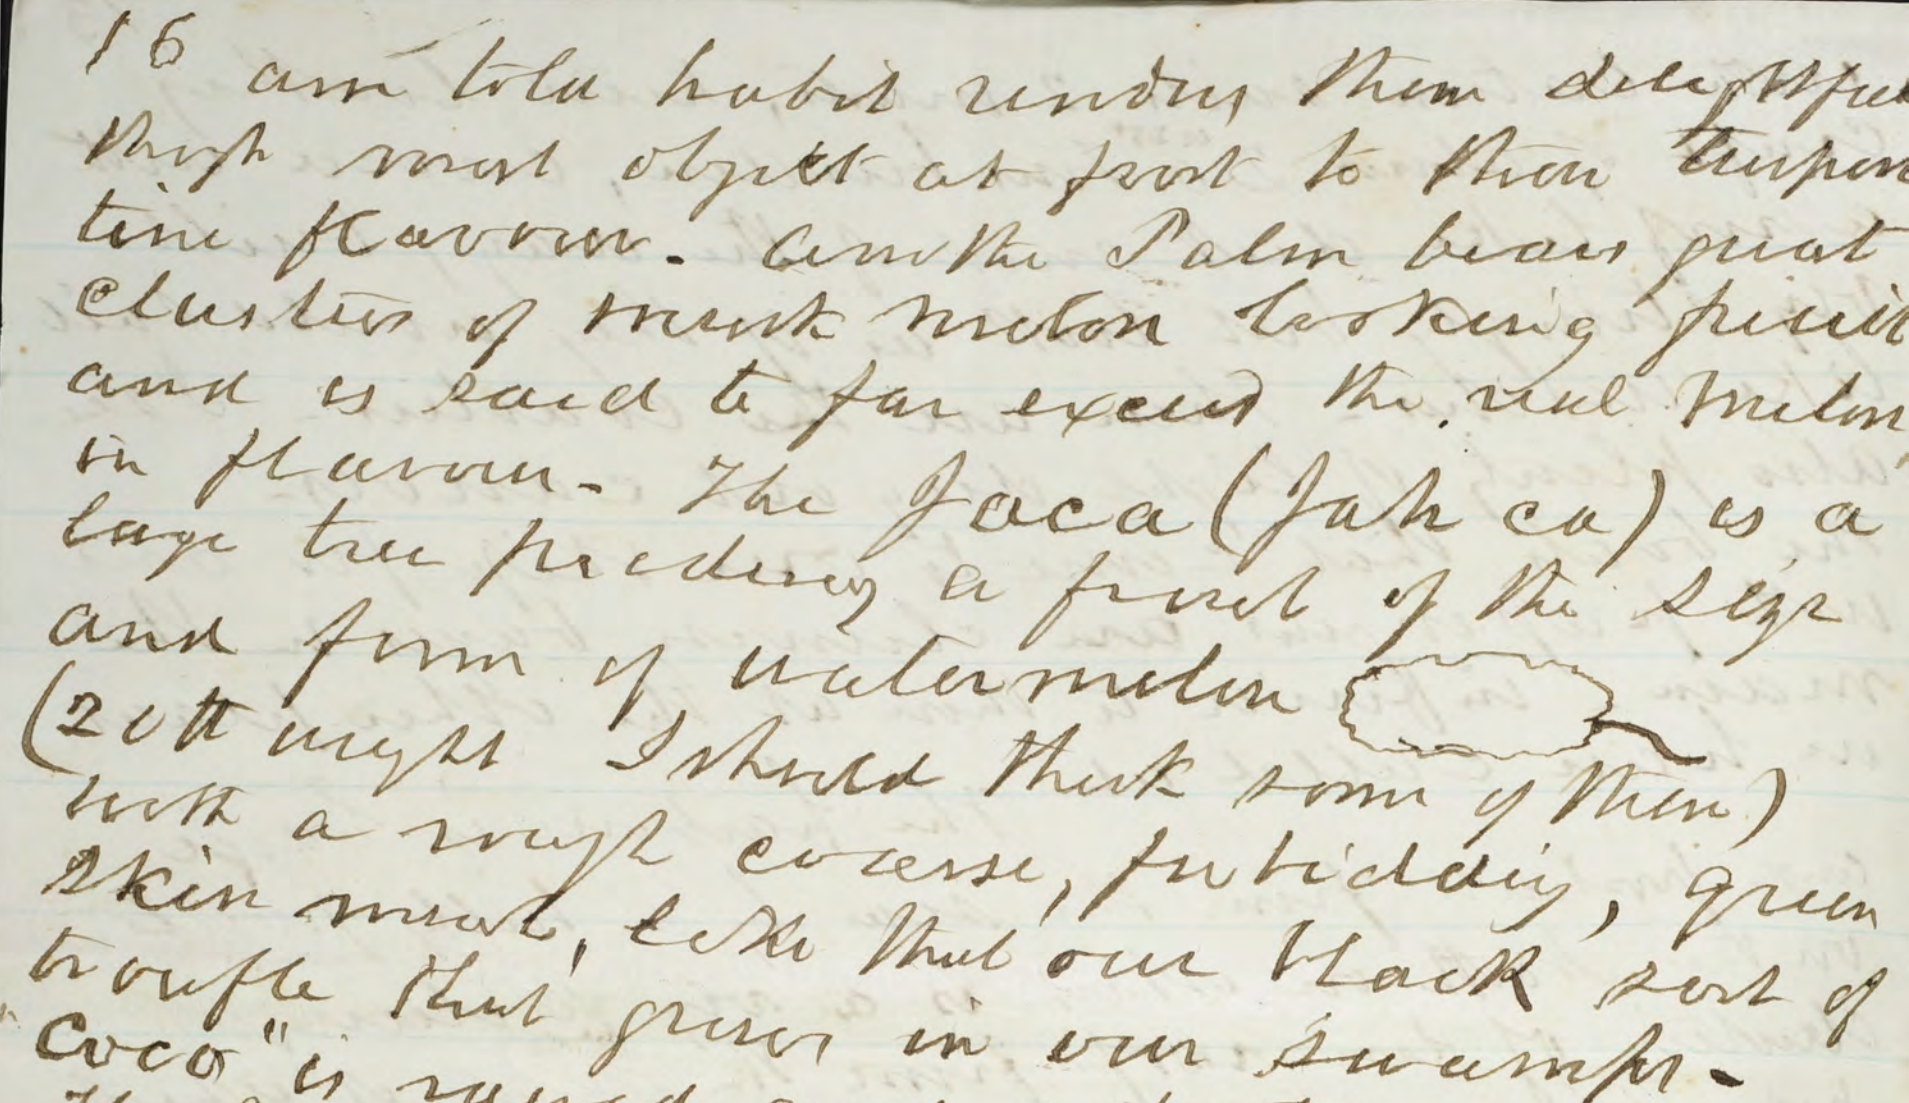 16
am told habit renders them delightful
though most object at first to their turpen
tine flavour - Another Palm bears great
clusters of musk melon looking fruit
and is said to far exceed the real melon
in flavour - The Jaca (Jah ca) is a
large tree producing a fruit of the size
and form of watermelon
(20 tt weight I should think some of them)
with a rough coarse, forbidding, green
skin most, like that our black sort of
troufle that grows in our swamps -
Coco" is